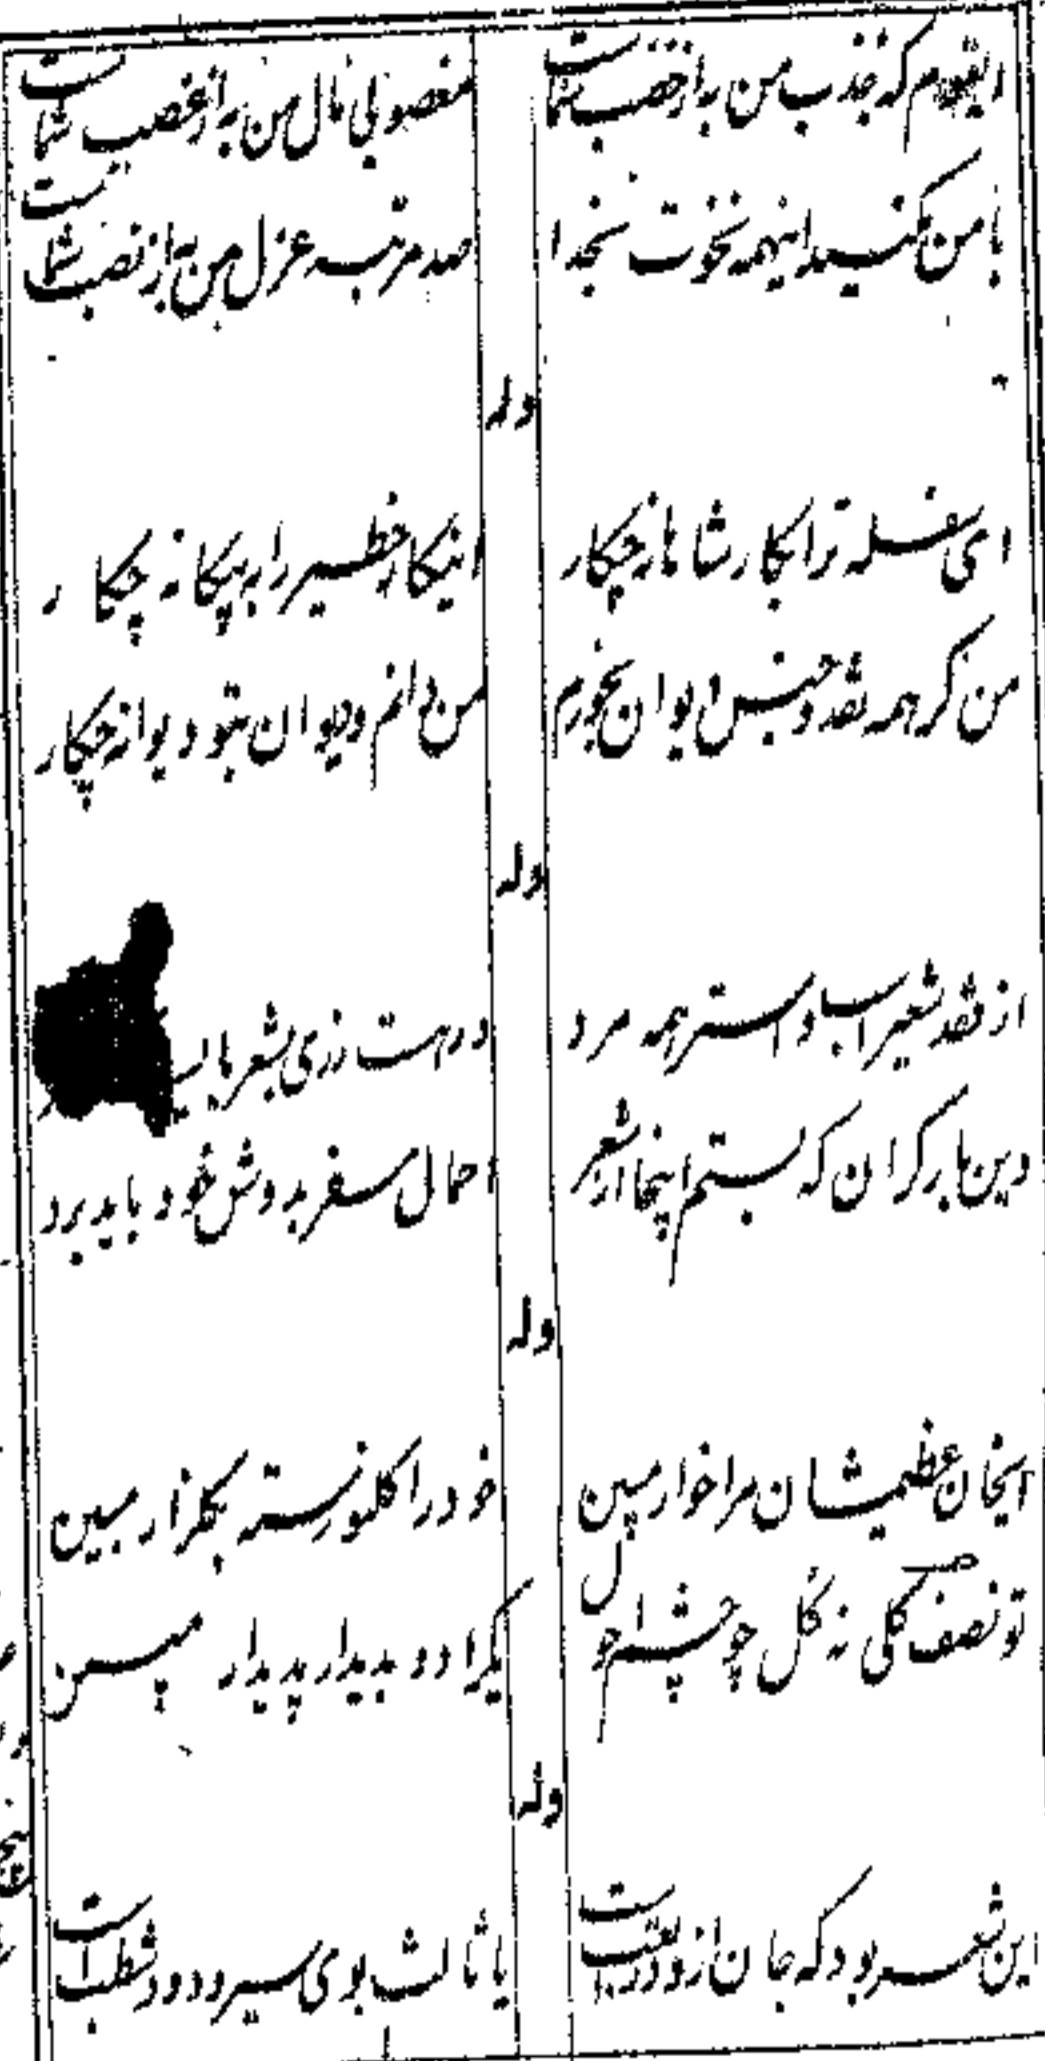 که جذب من به از خصب شماست
منصوبی مال من به از غصب شماست
با من مکنید اینهمه نخوت بخدا
صد مرتبه عزل من به از نصب شماست
وله
ای سفله ترا بکار شاهانه چکار
اینکار خطیر را به پیکانه چکار
من گر همه نقد و جنس دیوان بخورم
من دانم و دیوان بتو دیوانه چکار
وله
از قصد شعیر اسب و استر همه مرد
در هست زری بشعر باید
وین بار گران که بستم اینجا از شعر
احمال سفر بدوش خود باید برد
وله
ایخان عظیمشان مرا خوار مبین
خود را گلنورسته بگلزار مبین
تو نصف گلی نه گل چو چشم احول
یکرا دو بدیدار پدیدار مبین
وله
این شعر بود که جان ازو در تعبست
یا ثالث بوی سیر و دود شطبست